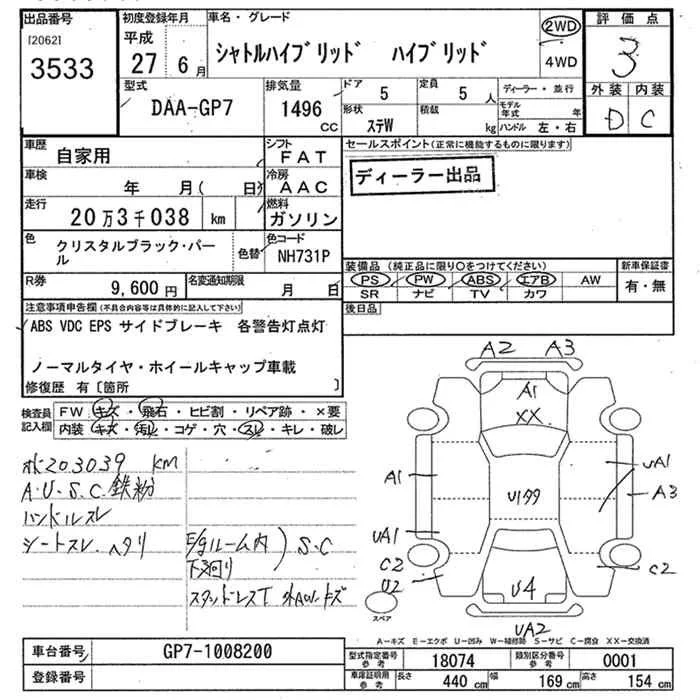 出品番号 初度登録年月 車名・グレード 2WD 評価点
[2062] 平成 シャトルハイブリッド ハイブリッド 3
3533 27 6月 4WD
外装 内装
D C
型式 排気量 ドア 5 定員 5人 ディーラー・並行
DAA-GP7 1496 cc 形状 ステW 積載 kg モデル年式 年
ハンドル 左・右
車歴 自家用 シフト FAT セールスポイント(正常に機能するものに限ります)
車検 年 月( 日) 冷房 AAC ディーラー出品
走行 20万3千038 km 燃料 ガソリン
色 クリスタルブラック・パール 色替 色コード NH731P
装備品 (純正品に限り○をつけてください) 新車保証書
R券 9,600円 名変通知期限 月 日 PS PW ABS エアB AW 有・無
SR ナビ TV カワ
注意事項申告欄(不具合内容等は具体的に記入して下さい) 後日品
ABS VDC EPS サイドブレーキ 各警告灯点灯
ノーマルタイヤ・ホイールキャップ車載
修復歴 有〔箇所 〕
検査員記入欄 FW キズ・飛石・ヒビ割・リペア跡・×要
内装 キズ・汚れ・コゲ・穴・スレ・キレ・破レ
A2 A3
A1
XX
A1 U199 UA1
A3
UA1
C2 C2
U2 U4
UA2
スペア
メ203039 km
A・U・S・C 鉄粉
ハンドルスレ
シートスレ・ヘタリ E/gルーム内
下廻り ) S・C
スタッドレスT 外AWキズ
A-キズ E-エクボ U-凹み W-補修跡 S-サビ C-腐食 XX-交換済
車台番号 GP7-1008200 型式指定番号 参考 18074 類別区分番号 参考 0001
登録番号 車庫証明用 参考 長さ 440 cm 幅 169 cm 高さ 154 cm